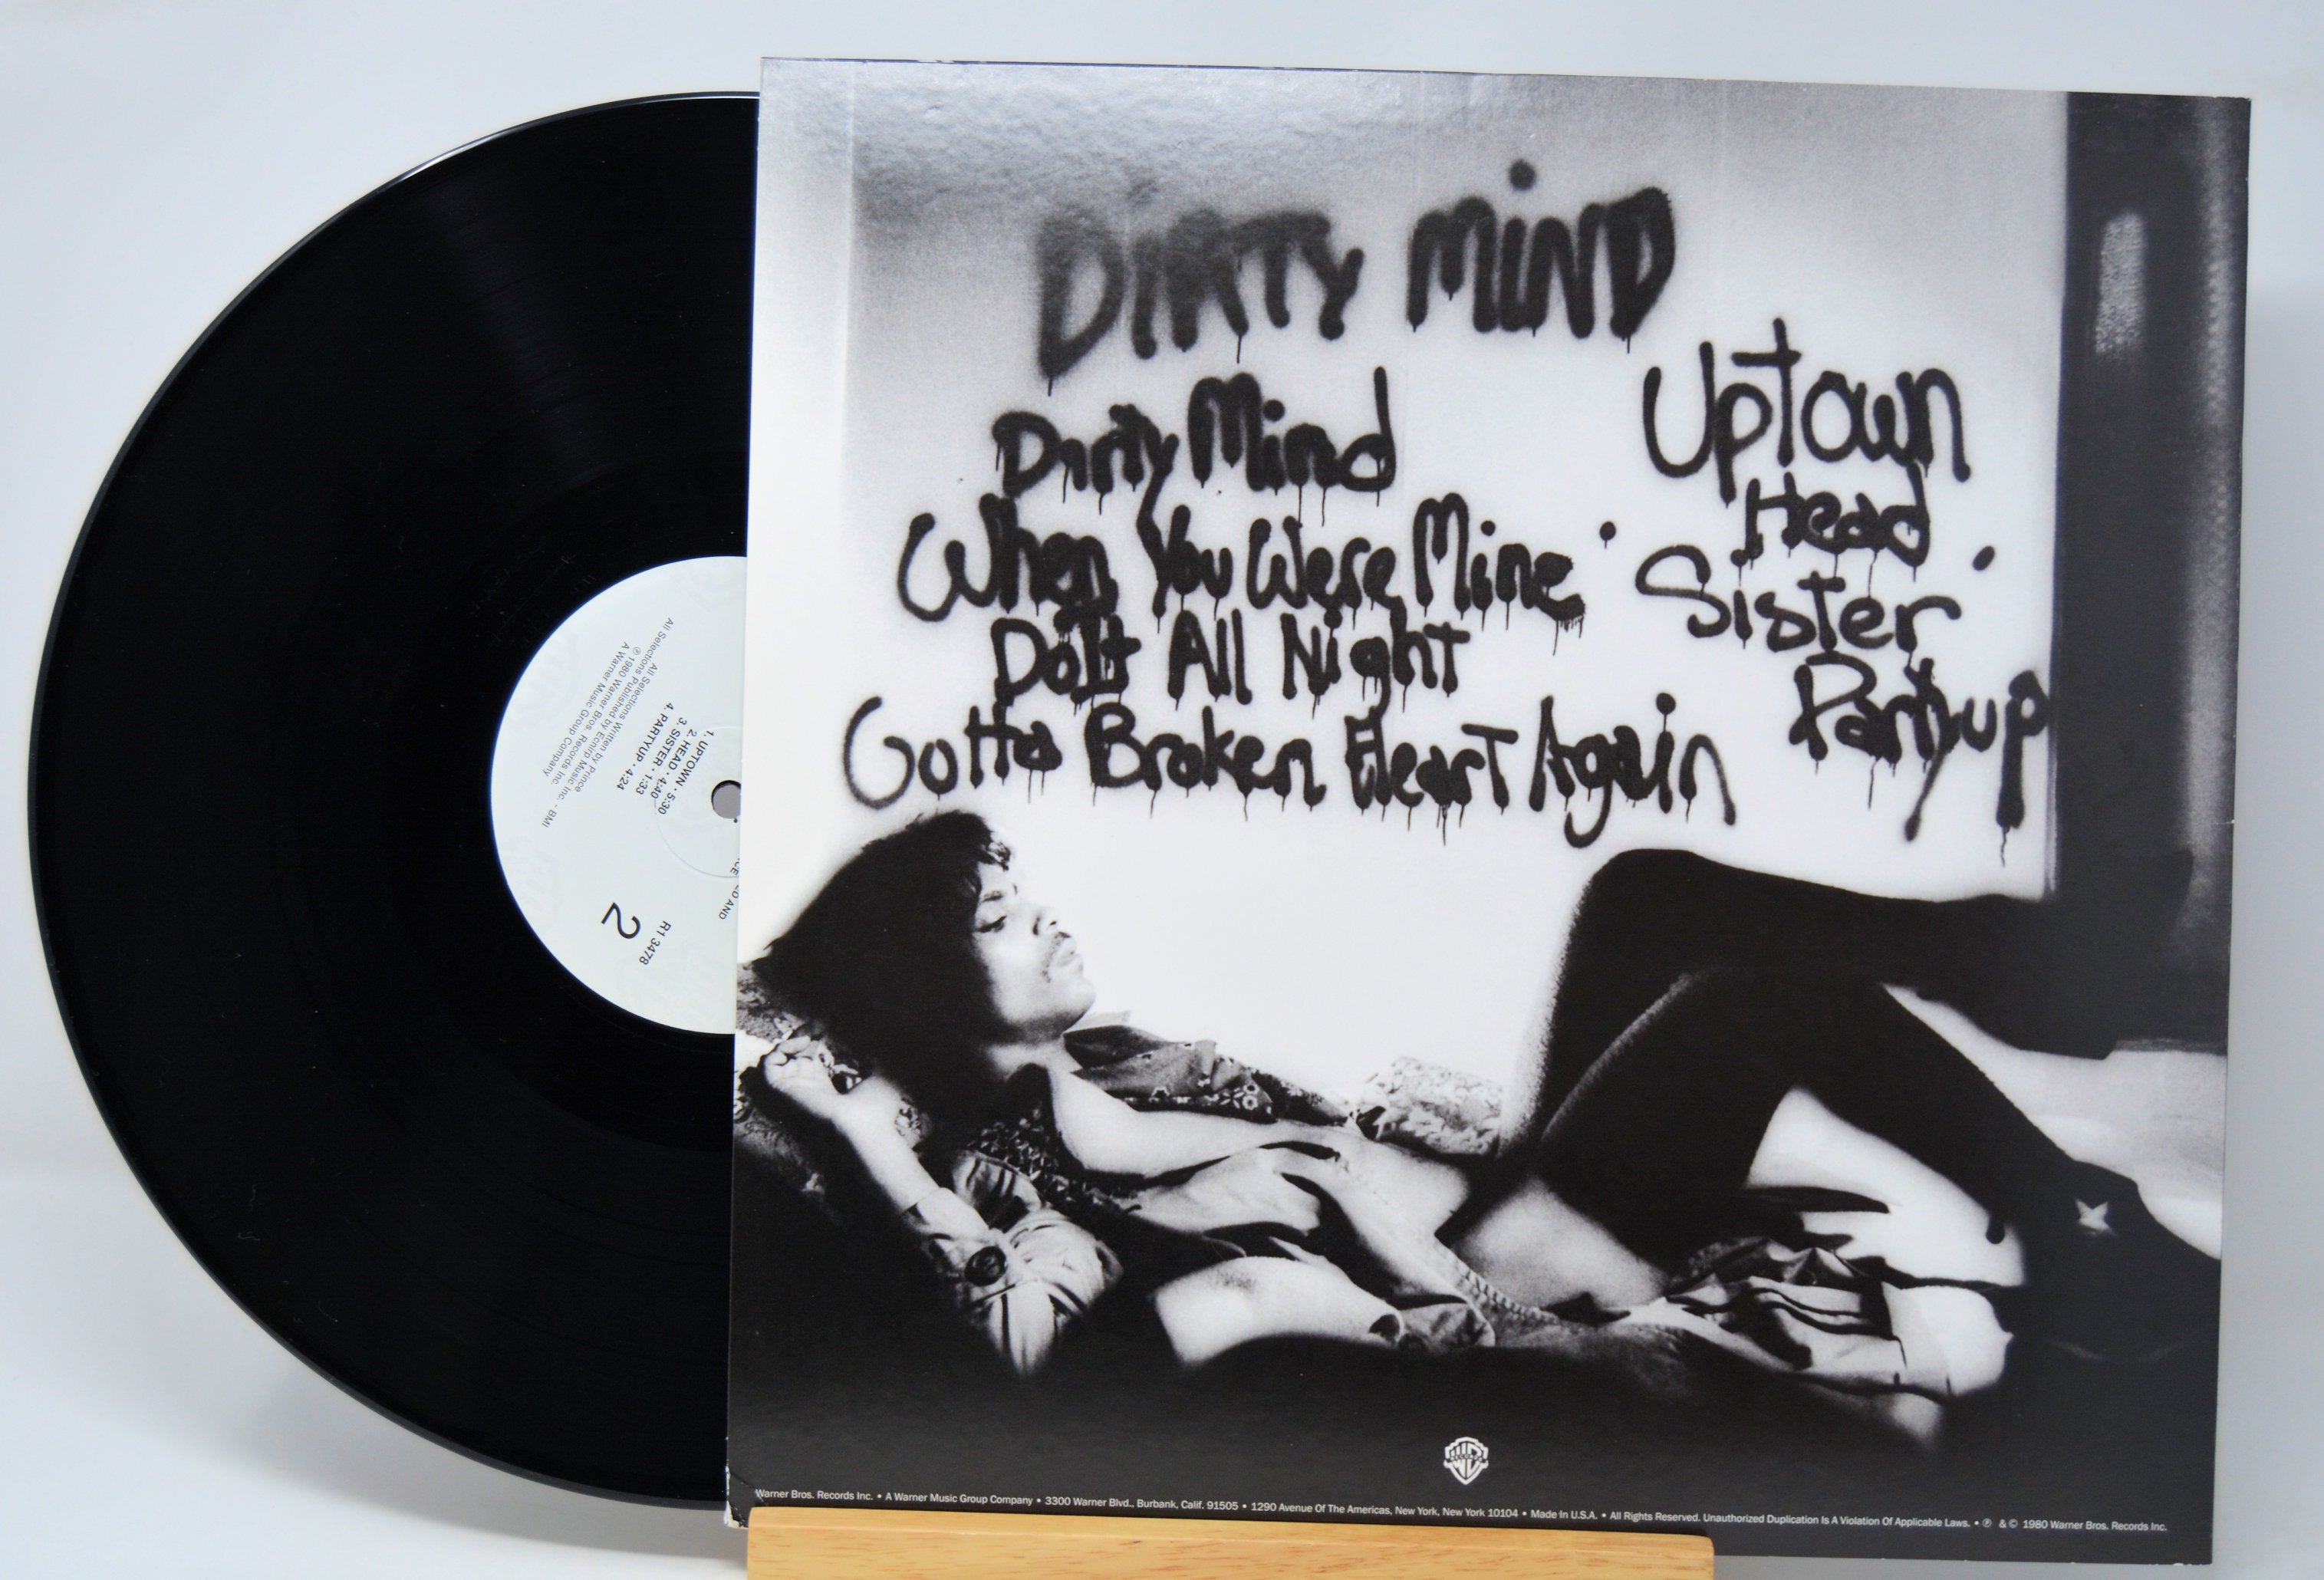 DiRTY MiND
Dirty Mind
When You Were Mine
Do It All Night
Gotta Broken Heart Again
Uptown
Head
Sister
Partyup
All Selections Written by Prince
All Selections Published by Ecnirp Music Inc. - BMI
℗ 1980 Warner Bros. Records Inc.
A Warner Music Group Company
1. UPTOWN • 5:30
2. HEAD • 4:40
3. SISTER • 1:33
4. PARTYUP • 4:24
2
R1 3478
ED AND
WB
Warner Bros. Records Inc. • A Warner Music Group Company • 3300 Warner Blvd., Burbank, Calif. 91505 • 1290 Avenue Of The Americas, New York, New York 10104 • Made In U.S.A. • All Rights Reserved. Unauthorized Duplication Is A Violation Of Applicable Laws. • ℗ & © 1980 Warner Bros. Records Inc.